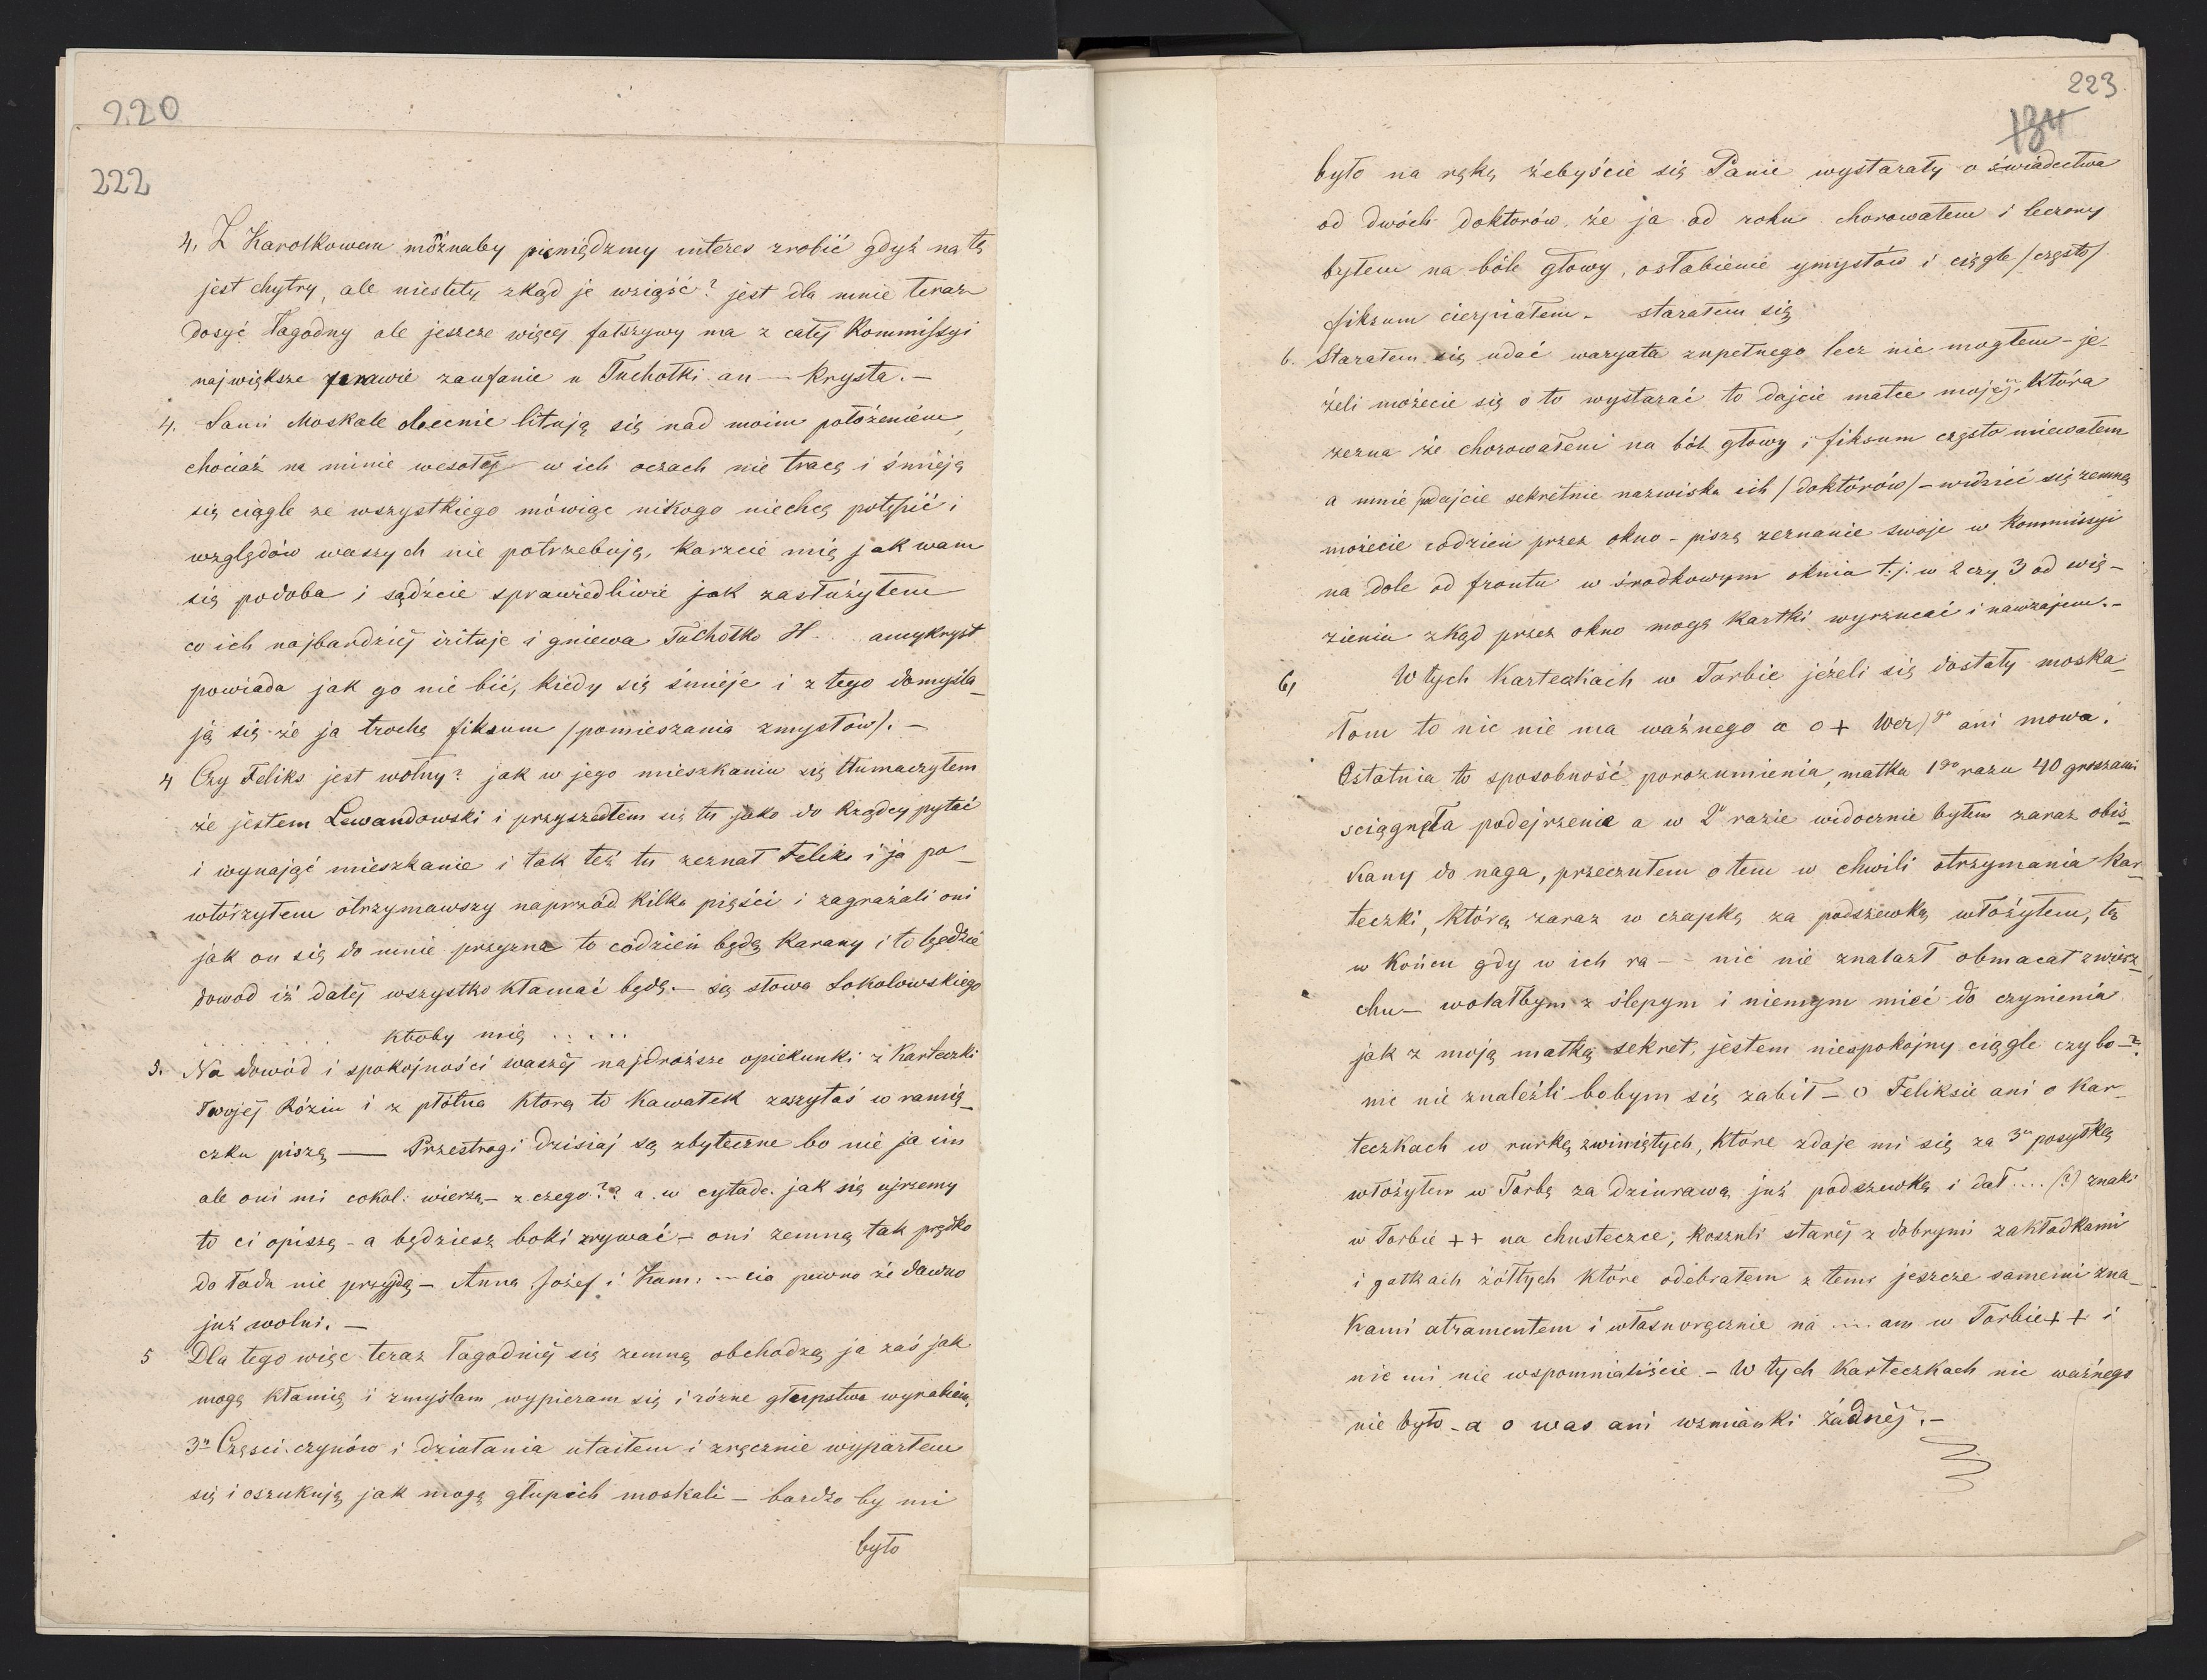 220
222
4. Z Karolkowem możnaby pieniędzmy interes zrobić gdyż na tę
jest chytry, ale niestety zkąd je wziąść? jest dla mnie teraz
dosyć łagodny ale jeszcze więcej fałszywy ma z całej Kommissyi
największe prawie zaufanie u Tuchołki an — Krysta. —
4. Sami Moskale obecnie litują się nad moim położeniem,
chociaż na minie wesołej w ich oczach nie tracę i śmieję
się ciągle ze wszystkiego mówiąc nikogo niechcę potępić i
względów waszych nie potrzebuję, karzcie mię jak wam
się podoba i sądźcie sprawiedliwie jak zasłużyłem
co ich najbardziej irituje i gniewa Tuchołko H... amykryst
powiada jak go nie bić, kiedy się śmieje i z tego domyśla_
ją się że ja trochę fiksum /pomieszania zmysłów/. —
4 Czy Feliks jest wolny? jak w jego mieszkaniu się tłumaczyłem
że jestem Lewandowski i przyszedłem się tu jako do Rządcy pytać
i wynająć mieszkanie i tak też tu zeznał Feliks i ja po_
wtórzyłem otrzymawszy naprzód kilka pięści i zagrażali oni
jak on się do mnie przyzna to codzień będę karany i to będzie
dowod iż dalej wszystko kłamać będę. — są słowa Sokołowskiego
........ ktoby mię .....
3. Na dowód i spokojności waszej najdroższe opiekunki z Karteczki
Twojej Róziu i z płótna którą to kawałek zaszyłaś w ramią_
czku piszę — Przestrogi dzisiaj są zbyteczne bo nie ja im
ale oni mi cokol: wierzą — z czego?? a w cytade. jak się ujrzemy
to ci opiszę — a będziesz boki zrywać — oni zemną tak prędko
do ładu nie przyjdą — Anna Józef i Kam: ... cia pewno że dawno
już wolni. —
5 Dla tego więc teraz łagodniej się zemną obchodzą ja zaś jak
mogę kłamię i zmyślam wypieram się i różne głupstwa wyrabiam,
3ą Części czynów i działania utaiłem i zręcznie wyparłem
się i oszukuję jak mogę głupich moskali — bardzo by mi
było
223
184
było na rękę żebyście się Panie wystarały o świadectwa
od dwóch doktorów że ja od roku chorowałem i leczony
byłem na bóle głowy, osłabienie umysłów i ciągle /często/
fiksum cierpiałem. starałem się
6. Starałem się udać waryata zupełnego lecz nie mogłem — je_
żeli możecie się o to wystarać to dajcie matce mojej, która
zezna że chorowałem na ból głowy i fiksum często miewałem
a mnie podajcie sekretnie nazwiska ich /doktorów/ — widzieć się zemną
możecie codzień przez okno — piszę zeznanie swoje w Kommissyi
na dole od frontu w środkowym oknia t: j: w 2 czy 3 od wię_
zienia zkąd przez okno mogę kartki wyrzucać i nawzajem. —
6, W tych Karteczkach w Torbie jeżeli się dostały moska_
lom to nic nie ma ważnego a o + Wer)go ani mowa.
Ostatnia to sposobność porozumienia, matka 1go razu 40 groszami
sciągnęła podejrzenie a w 2m razie widocznie byłem zaraz obis_
kany do naga, przeczułem o tem w chwili otrzymania kar_
teczki, którą zaraz w czapkę za podszewkę włożyłem, tę
w końcu gdy w ich ra — nic nie znalazł obmacał zwierz_
chu — wolałbym z ślepym i niemym mieć do czynienia
jak z moją matką sekret, jestem niespokojny ciągle czy bo — ?
nic nie znaleźli bobym się zabił — o Feliksie ani o Kar_
teczkach w rurkę zwiniętych, które zdaje mi się za 3ą posyłką
włożyłem w Torbę za dziurawą już podszewkę i dał .... (?) znaki
w Torbie ++ na chusteczce, koszuli starej z dobrymi zakładkami
i gatkach żółtych które odebrałem z temi jeszcze samemi zna_
kami atramentem i własnoręcznie na .... am w Torbie ++ i
nic mi nie wspomnieliście — W tych Karteczkach nic ważnego
nie było — a o was ani wzmianki żadnej. —